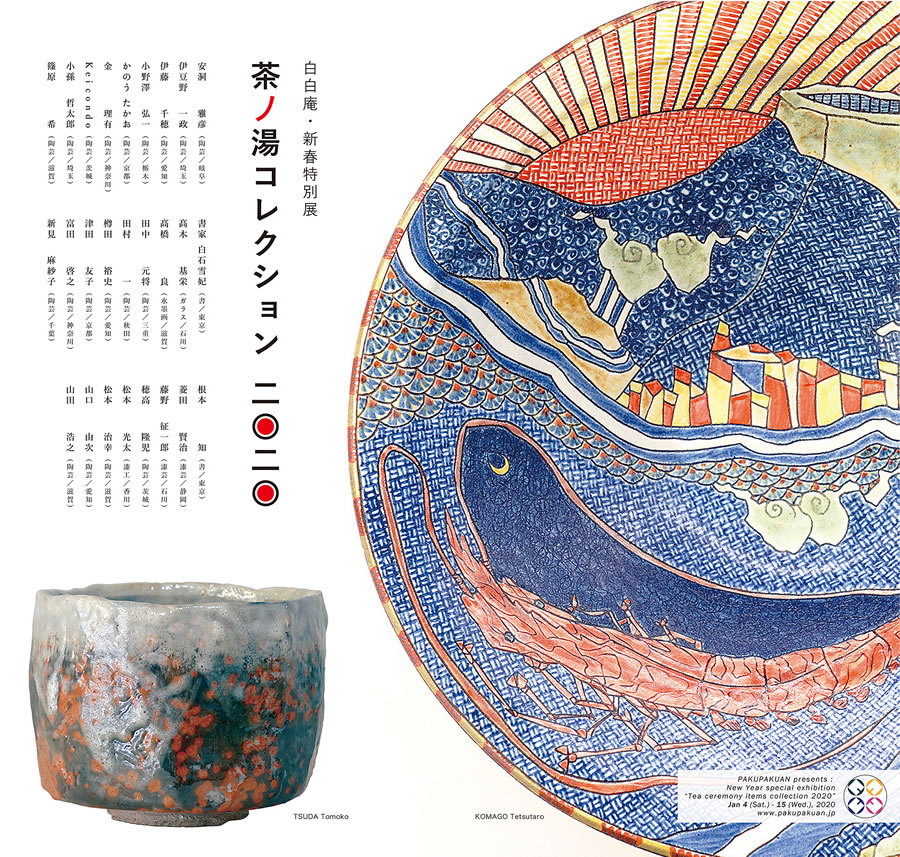 白白庵・新春特別展
茶ノ湯コレクション 二〇二〇
安洞 雅彦（陶芸／岐阜）
伊豆野 一政（陶芸／埼玉）
伊藤 千穂（陶芸／愛知）
小野澤 弘一（陶芸／栃木）
かのう たかお（陶芸／京都）
金 理有（陶芸／神奈川）
Keicondo（陶芸／茨城）
小孫 哲太郎（陶芸／埼玉）
篠原 希（陶芸／滋賀）
書家 白石雪妃（書／東京）
高木 基栄（ガラス／石川）
高橋 良（水墨画／滋賀）
田中 元将（陶芸／三重）
田村 一（陶芸／秋田）
樽田 裕史（陶芸／愛知）
津田 友子（陶芸／京都）
富田 啓之（陶芸／神奈川）
新見 麻紗子（陶芸／千葉）
根本 知（書／東京）
菱田 賢治（漆芸／静岡）
藤野 征一郎（漆芸／石川）
穂高 隆児（陶芸／茨城）
松本 光太（漆工／香川）
松本 治幸（陶芸／滋賀）
山口 由次（陶芸／愛知）
山田 浩之（陶芸／滋賀）
TSUDA Tomoko
KOMAGO Tetsutaro
PAKUPAKUAN presents :
New Year special exhibition
"Tea ceremony items collection 2020"
Jan 4 (Sat.) - 15 (Wed.), 2020
www.pakupakuan.jp